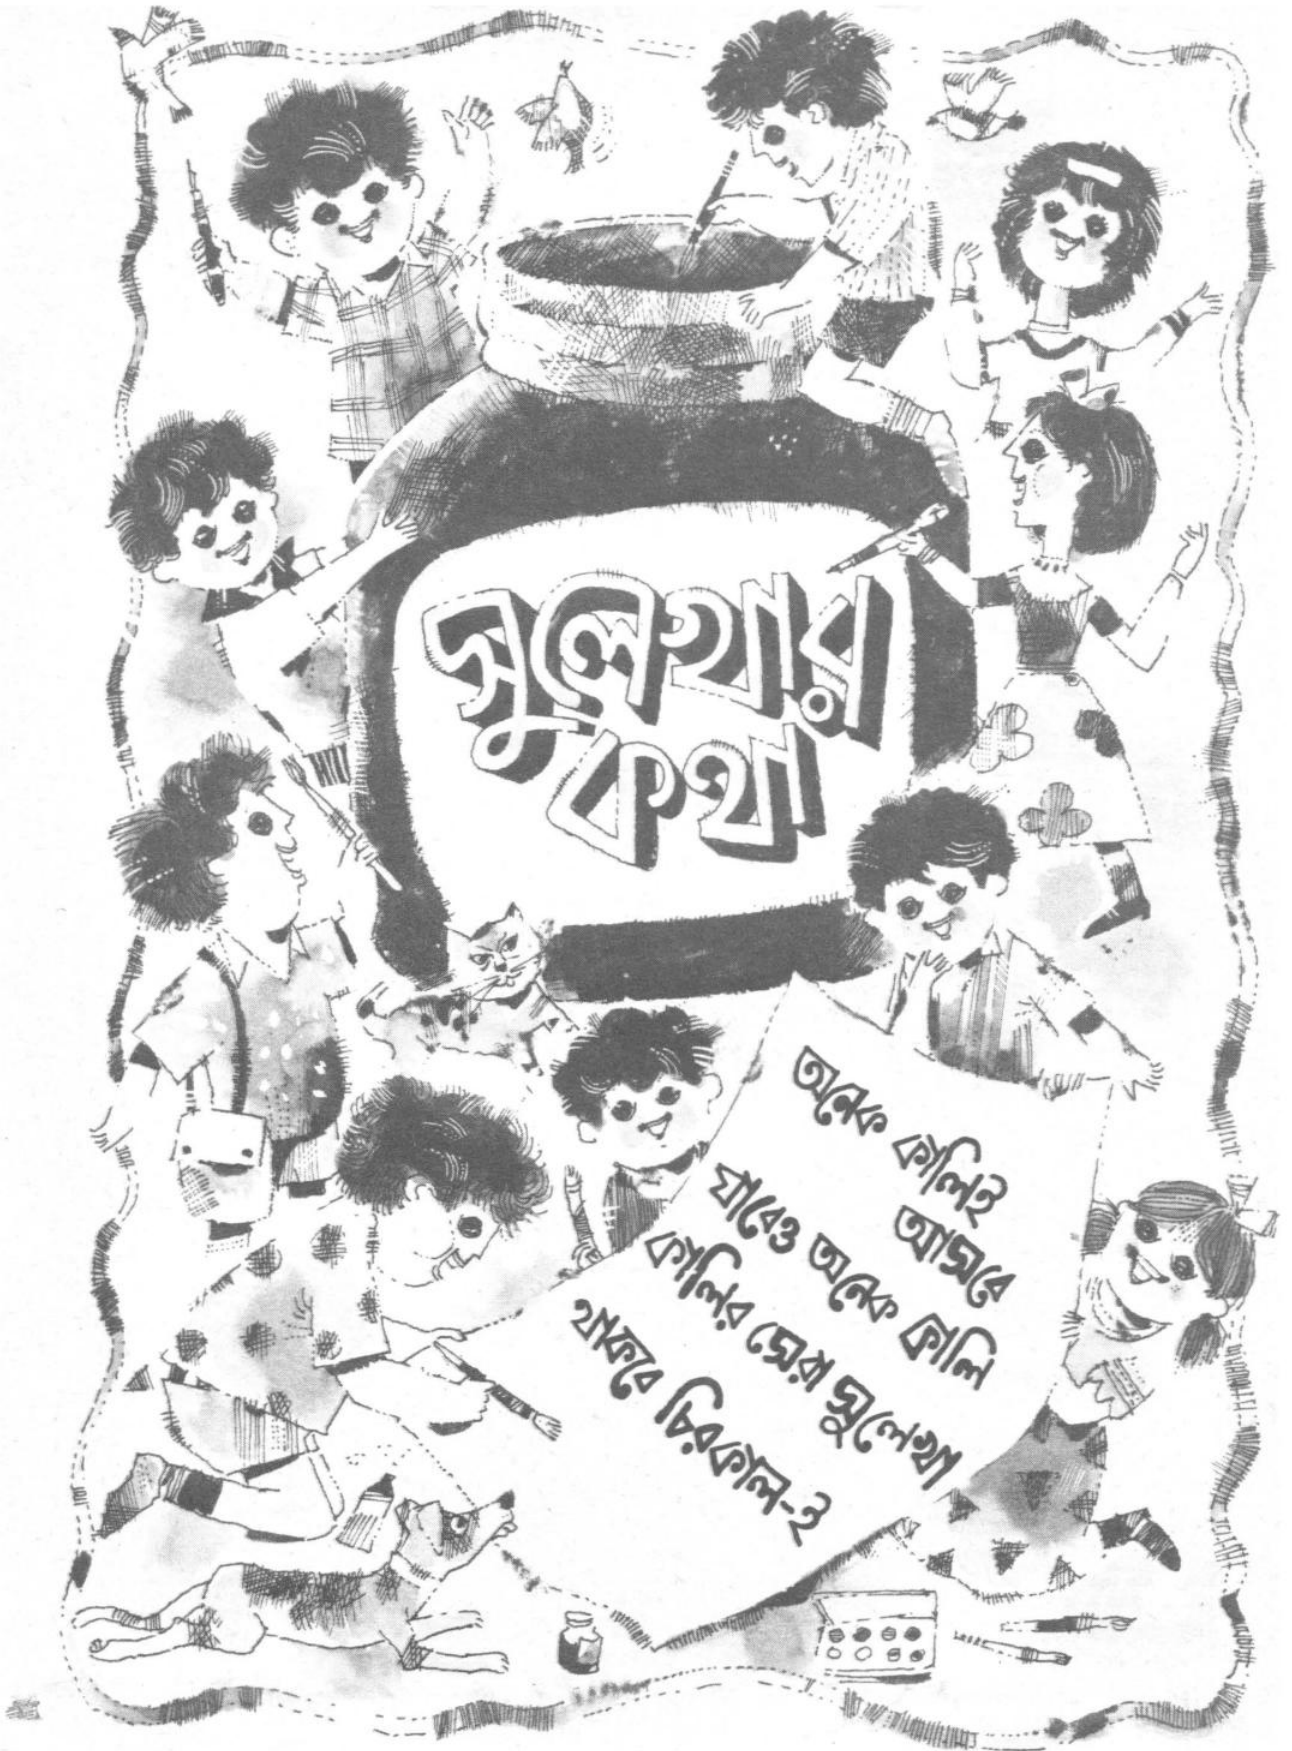 সুলেখার
কথা
অনেক কালিই
আসবে
যাবেও অনেক কালি
কালির সেরা সুলেখা
থাকবে চিরকাল-ই